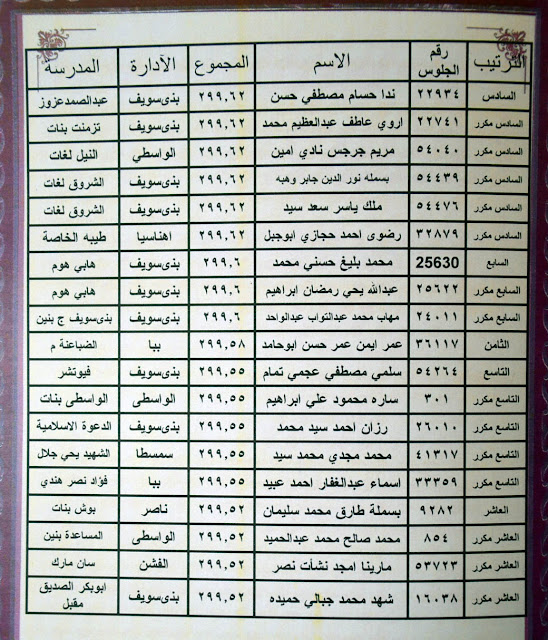 الترتيب رقم الجلوس الاسم المجموع الأدارة المدرسة
السادس ٢٢٩٣٤ ندا حسام مصطفي حسن ٢٩٩,٦٢ بنى سويف عبدالصمدعزوز
السادس مكرر ٢٢٧٤١ اروي عاطف عبدالعظيم محمد ٢٩٩,٦٢ بنى سويف تزمنت بنات
السادس مكرر ٥٤٠٤٠ مريم جرجس نادي امين ٢٩٩,٦٢ الواسطي النيل لغات
السادس مكرر ٥٤٤٣٩ بسمله نور الدين جابر وهبه ٢٩٩,٦٢ بنى سويف الشروق لغات
السادس مكرر ٥٤٤٧٦ ملك ياسر سعد سيد ٢٩٩,٦٢ بنى سويف الشروق لغات
السادس مكرر ٣٢٨٧٩ رضوى احمد حجازي ابوجبل ٢٩٩,٦٢ اهناسيا طيبه الخاصة
السابع 25630 محمد بليغ حسني محمد ٢٩٩,٦ بنى سويف هابي هوم
السابع مكرر ٢٥٦٢٢ عبدالله يحي رمضان ابراهيم ٢٩٩,٦ بنى سويف هابي هوم
السابع مكرر ٢٤٠١١ مهاب محمد عبدالتواب عبدالواحد ٢٩٩,٦ بنى سويف بنى سويف ج بنين
الثامن ٣٦١١٧ عمر ايمن عمر حسن ابوحامد ٢٩٩,٥٨ ببا الضباعنة م
التاسع ٥٤٢٦٤ سلمي مصطفي عجمي تمام ٢٩٩,٥٥ بنى سويف فيوتشر
التاسع مكرر ٣٠١ ساره محمود علي ابراهيم ٢٩٩,٥٥ الواسطى الواسطى بنات
التاسع مكرر ٢٦٠١٠ رزان احمد سيد محمد ٢٩٩,٥٥ بنى سويف الدعوة الاسلامية
التاسع مكرر ٤١٣١٧ محمد مجدي محمد سيد ٢٩٩,٥٥ سمسطا الشهيد يحي جلال
التاسع مكرر ٣٣٣٥٩ اسماء عبدالغفار احمد عبيد ٢٩٩,٥٥ ببا فؤاد نصر هندي
العاشر ٩٢٨٢ بسملة طارق محمد سليمان ٢٩٩,٥٢ ناصر بوش بنات
العاشر مكرر ٨٥٤ محمد صالح محمد عبدالحميد ٢٩٩,٥٢ الواسطى المساعدة بنين
العاشر مكرر ٥٣٧٢٣ مارينا امجد نشأت نصر ٢٩٩,٥٢ الفشن سان مارك
العاشر مكرر ١٦٠٣٨ شهد محمد جبالي حميده ٢٩٩,٥٢ بنى سويف ابوبكر الصديق مقبل